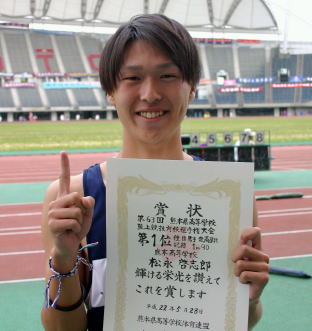 4 5 6 7 8
賞状
第63回 熊本県高等学校
陸上競技対校選手権大会
第1位
記録 1m90
熊本高等学校
松永 啓志郎
輝ける栄光を讃えて
これを賞します
平成22年5月28日
熊本県高等学校体育連盟